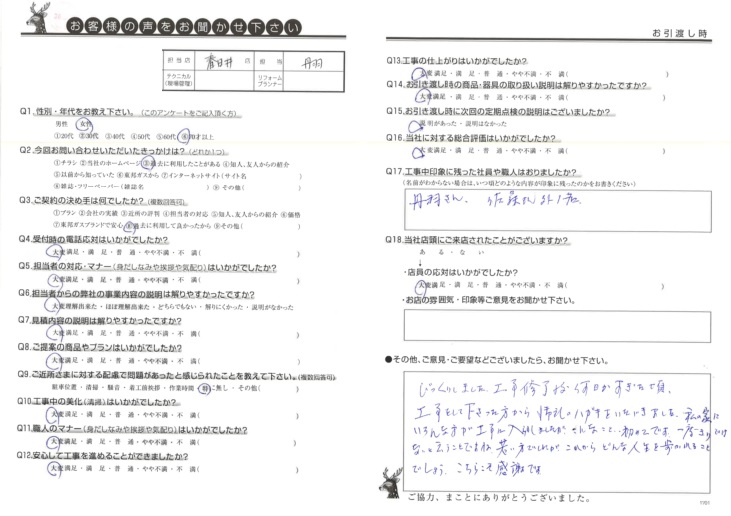 お客様の声をお聞かせ下さい
担当店 春日井 店 担当 丹羽
テクニカル(現場管理) リフォームプランナー
Q1.性別・年代をお教え下さい。(このアンケートをご記入頂く方)
男性 女性
①20代 ②30代 ③40代 ④50代 ⑤60代 ⑥70才以上
Q2.今回お問い合わせいただいたきっかけは?(どれか1つ)
①チラシ ②当社のホームページ ③過去に利用したことがある ④知人、友人からの紹介
⑤以前から知っていた ⑥東邦ガスから ⑦インターネットサイト(サイト名 )
⑧雑誌・フリーペーパー(雑誌名 ) ⑨その他( )
Q3.ご契約の決め手は何でしたか?(複数回答可)
①プラン ②会社の実績 ③近所の評判 ④担当者の対応 ⑤知人、友人からの紹介 ⑥価格
⑦東邦ガスブランドで安心 ⑧過去に利用して良かったから ⑨その他( )
Q4.受付時の電話応対はいかがでしたか?
大変満足・満 足・普 通・やや不満・不 満( )
Q5.担当者の対応・マナー(身だしなみや挨拶や気配り)はいかがでしたか?
大変満足・満 足・普 通・やや不満・不 満( )
Q6.担当者からの弊社の事業内容の説明は解りやすかったですか?
大変理解出来た・ほぼ理解出来た・どちらでもない・解りにくかった・説明がなかった
Q7.見積内容の説明は解りやすかったですか?
大変満足・満 足・普 通・やや不満・不 満( )
Q8.ご提案の商品やプランはいかがでしたか?
大変満足・満 足・普 通・やや不満・不 満( )
Q9.ご近所さまに対する配慮で問題があったと感じられたことを教えて下さい。(複数回答可)
駐車位置・清掃・騒音・着工前挨拶・作業時間・特に無し・その他( )
Q10.工事中の美化(清掃)はいかがでしたか?
大変満足・満 足・普 通・やや不満・不 満( )
Q11.職人のマナー(身だしなみや挨拶や気配り)はいかがでしたか?
大変満足・満 足・普 通・やや不満・不 満( )
Q12.安心して工事を進めることができましたか?
大変満足・満 足・普 通・やや不満・不 満( )
お引渡し時
Q13.工事の仕上がりはいかがでしたか?
大変満足・満 足・普 通・やや不満・不 満( )
Q14.お引き渡し時の商品・器具の取り扱い説明は解りやすかったですか?
大変満足・満 足・普 通・やや不満・不 満( )
Q15.お引き渡し時に次回の定期点検の説明はございましたか?
説明があった・説明はなかった
Q16.当社に対する総合評価はいかがでしたか?
大変満足・満 足・普 通・やや不満・不 満( )
Q17.工事中印象に残った社員や職人はおりましたか?
(名前がわからない場合は、いつ頃どのような内容が印象に残ったのかをお書きください)
丹羽さん、佐藤さん外1名
Q18.当社店頭にご来店されたことがございますか?
ある・ない
↓
・店員の応対はいかがでしたか?
大変満足・満 足・普 通・やや不満・不 満( )
・お店の雰囲気・印象等ご意見をお聞かせ下さい。
●その他、ご意見・ご要望などございましたら、お聞かせ下さい。
びっくりしました 工事修了后 何日かすぎた頃、
工事をして下さった方から 御礼のハガキをいただきました 私の家に
いろんな方が工事に入りましたが そんなこと…初めてです 一度きり
ないと云うことですね 若い方でしたが これから どんな人生を歩かれること
でしょう こちらこそ感謝です
ご協力、まことにありがとうございました。